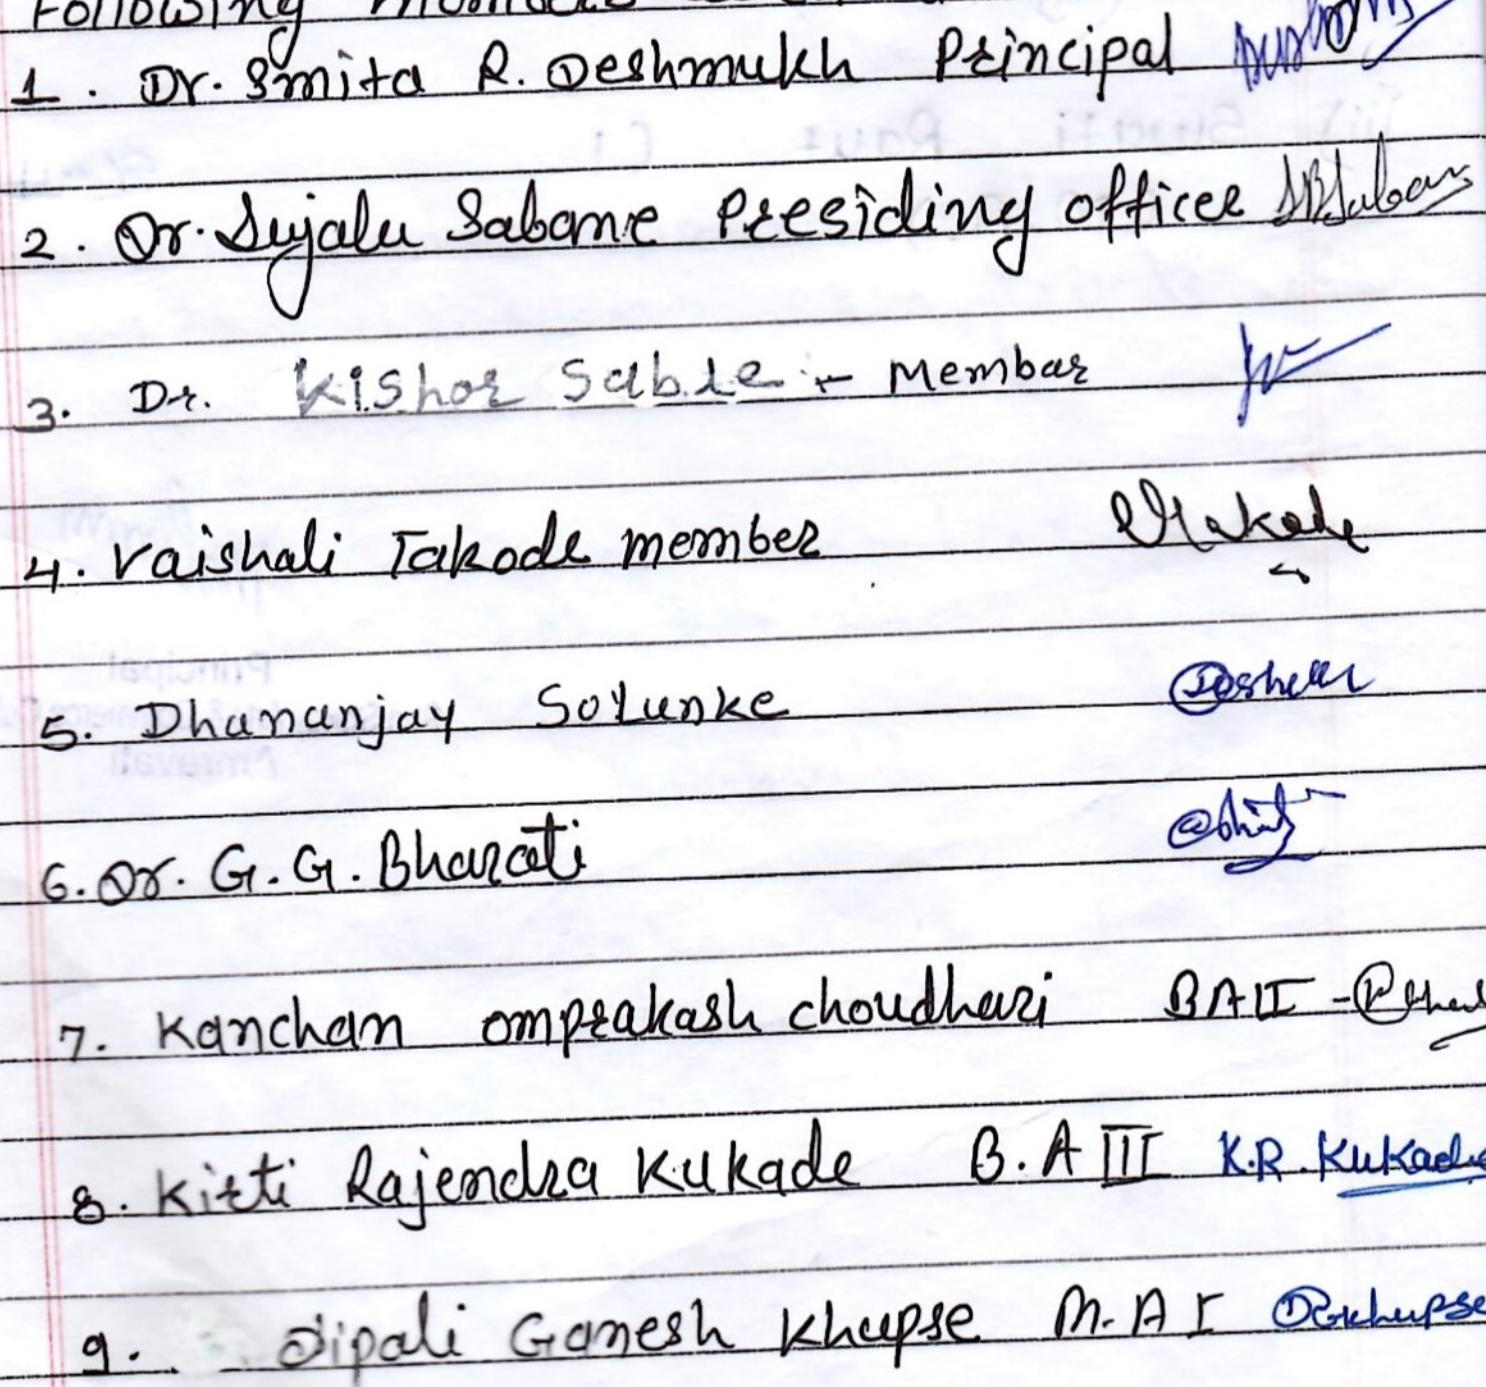 Following
1. Dr. Smita R. Deshmukh Principal
2. Dr. Sujala Sabane Presiding officer
3. Dr. Kishor Sable :- Membar
4. Vaishali Takode member
5. Dhananjay Solunke
6. Dr. G. G. Bharati
7. Kanchan omprakash choudhari BA II -
8. Kirti Rajendra Kukade B. A III K.R. Kukade
9. Dipali Ganesh Khupse M. A I